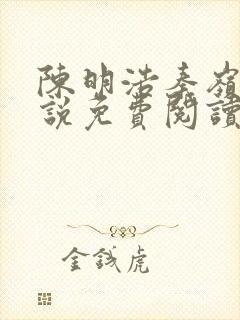 陳明浩秦嶺
說免費閱讀
金錢虎